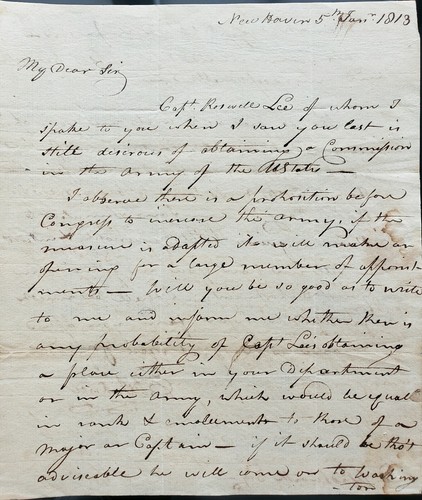 New Haven 5th Jany. 1813
My Dear Sir
Capt. Roswell Lee of whom I
spake to you when I saw you last is
still desirous of obtaining a Commission
in the Army of the UStates —
I observe there is a proposition before
Congress to increase the army, if the
measure is adapted it will make an
opening for a large number of appoint
ments — Will you be so good as to write
to me and inform me whether there is
any probability of Capt Lee's obtaining
a place either in your Department
or in the army, which would be equal
in rank & emoluments to those of a
Major or Captain — if it should be tho't
adviseable he will come on to Washing
ton